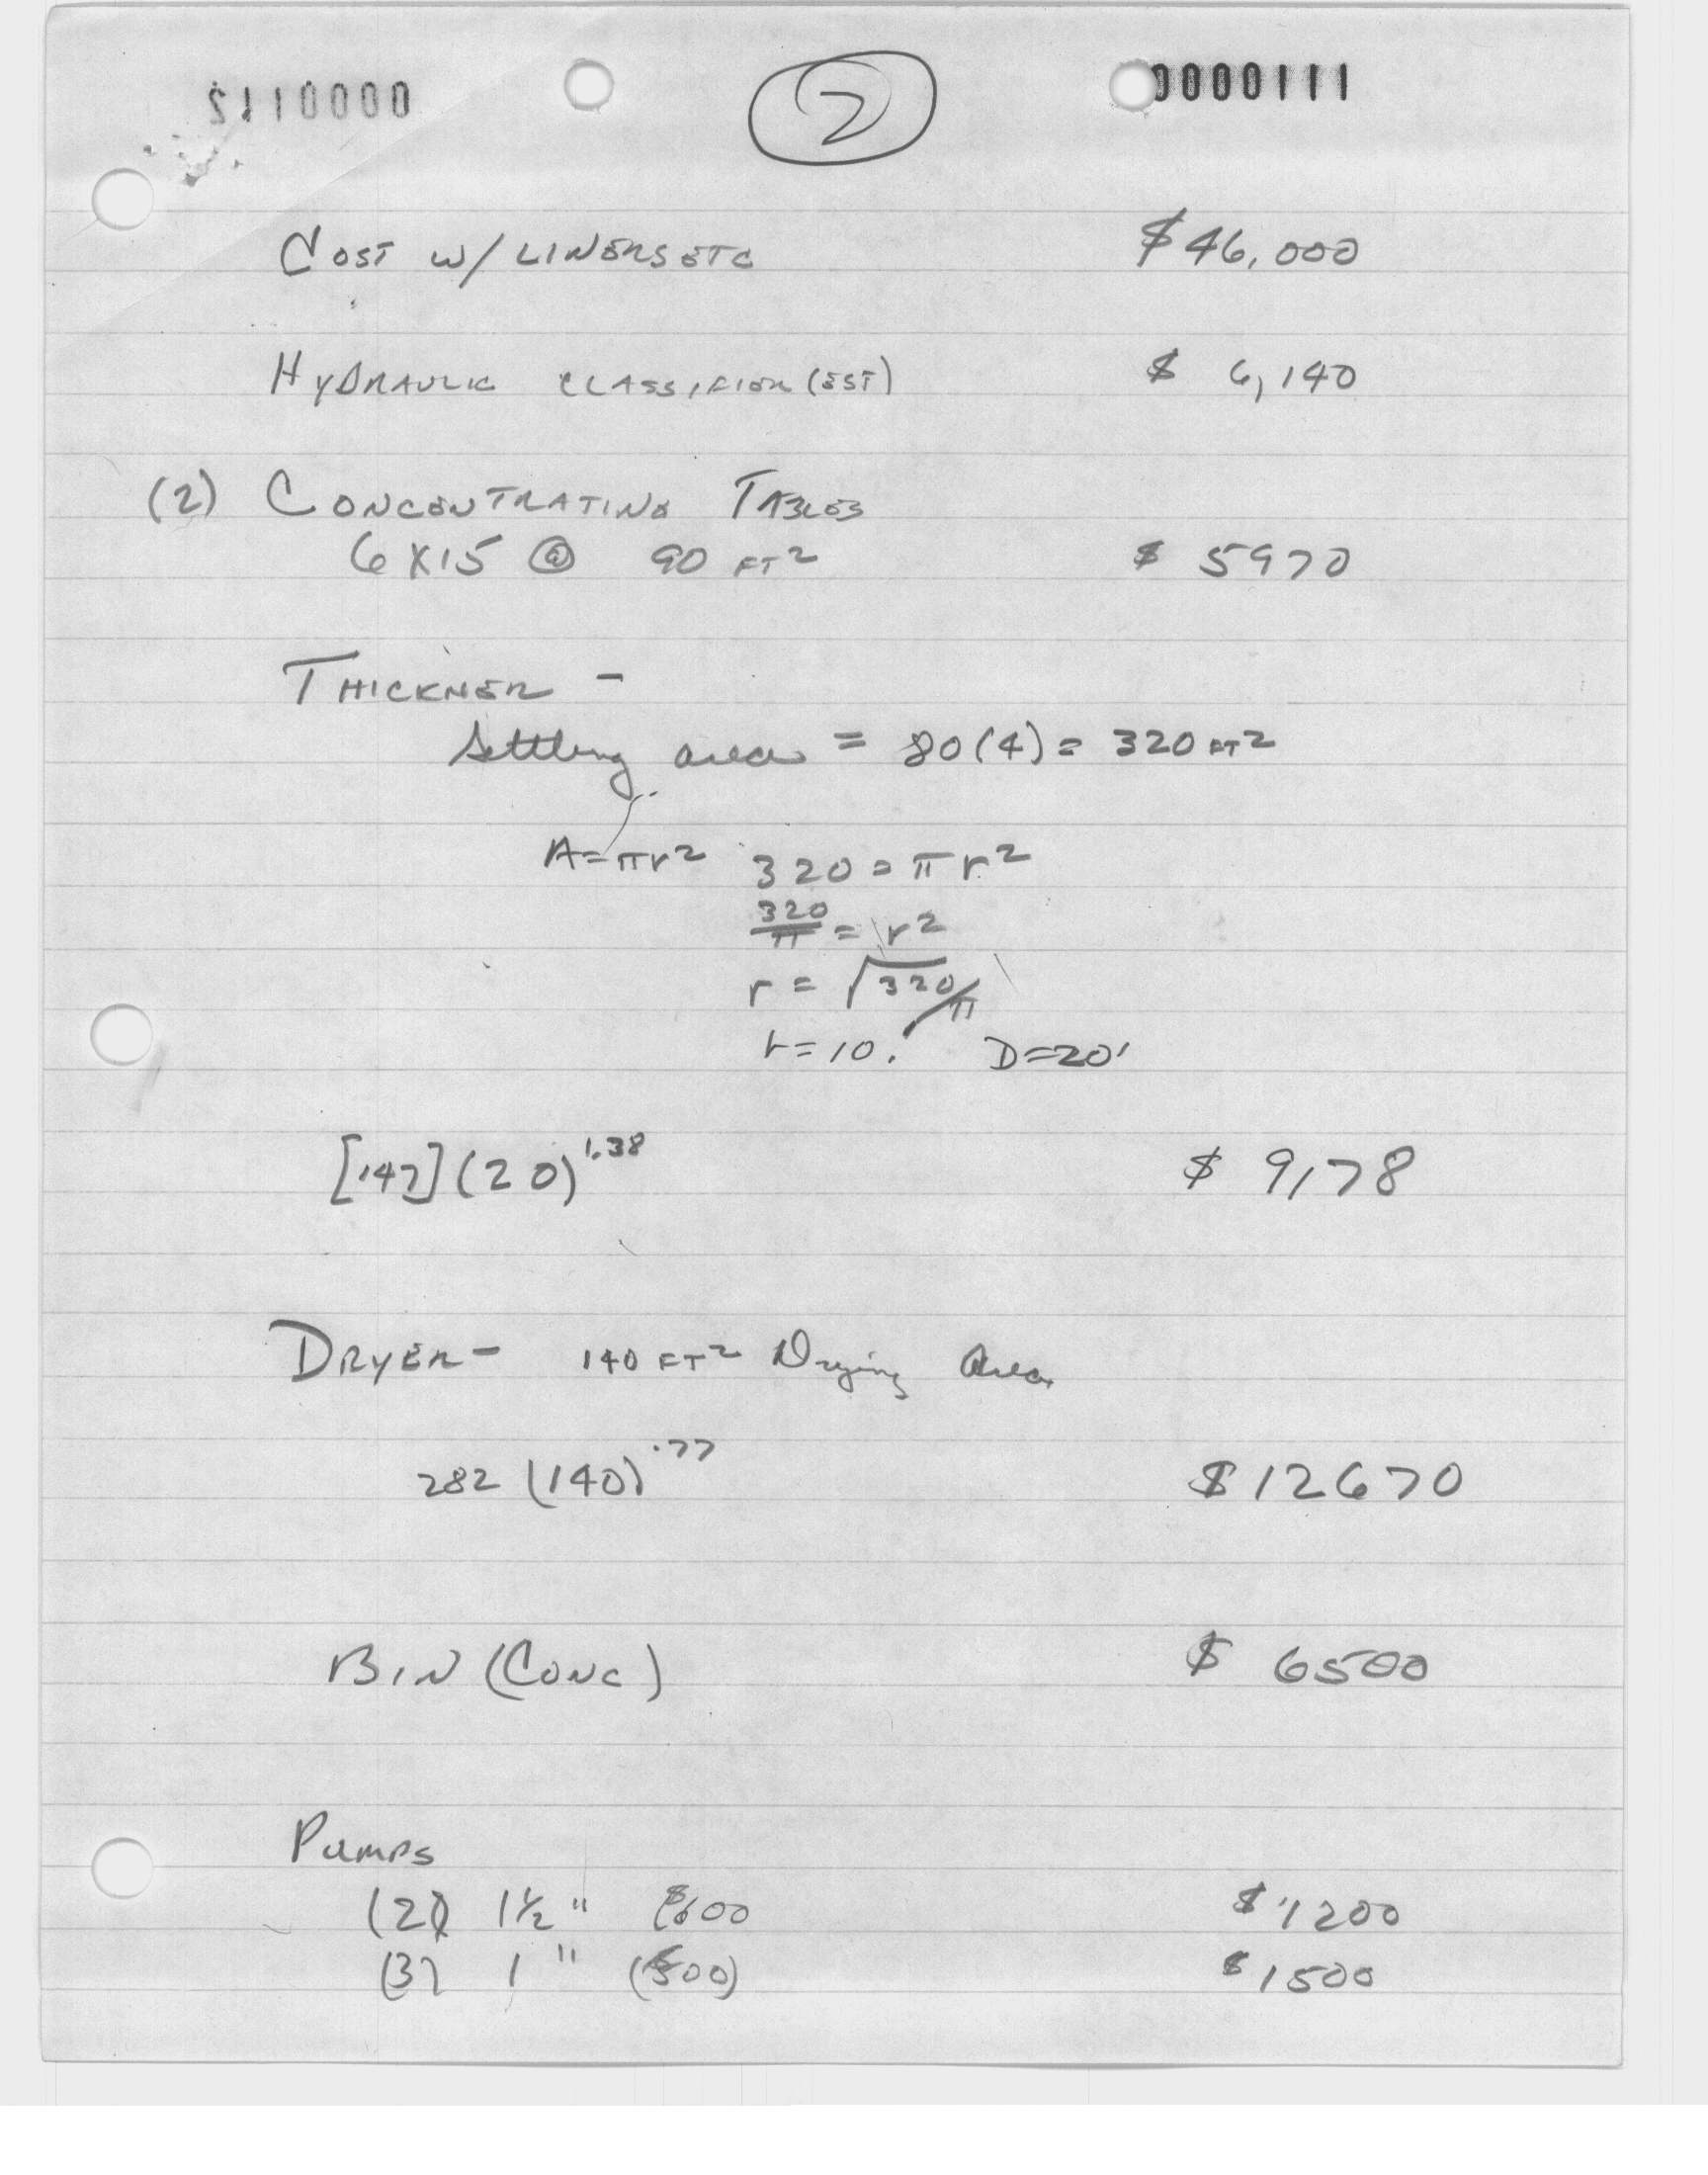 2
0000111
COST W/ LINERS ETC $46,000
HYDRAULIC CLASSIFIER (EST) $ 6,140
(2) CONCENTRATING TABLES
6 X 15 @ 90 FT² $ 5970
THICKNER -
Settling area = 80(4) = 320 FT²
A=πr² 320 = πr²
320/π = r²
r = √320/π
r=10. D=20'
[147](20)^1.38 $ 9,178
DRYER - 140 FT² Drying Area
282 (140)^.77 $12670
BIN (CONC) $ 6500
PUMPS
(2) 1½" $600 $1200
(3) 1" (500) $1500